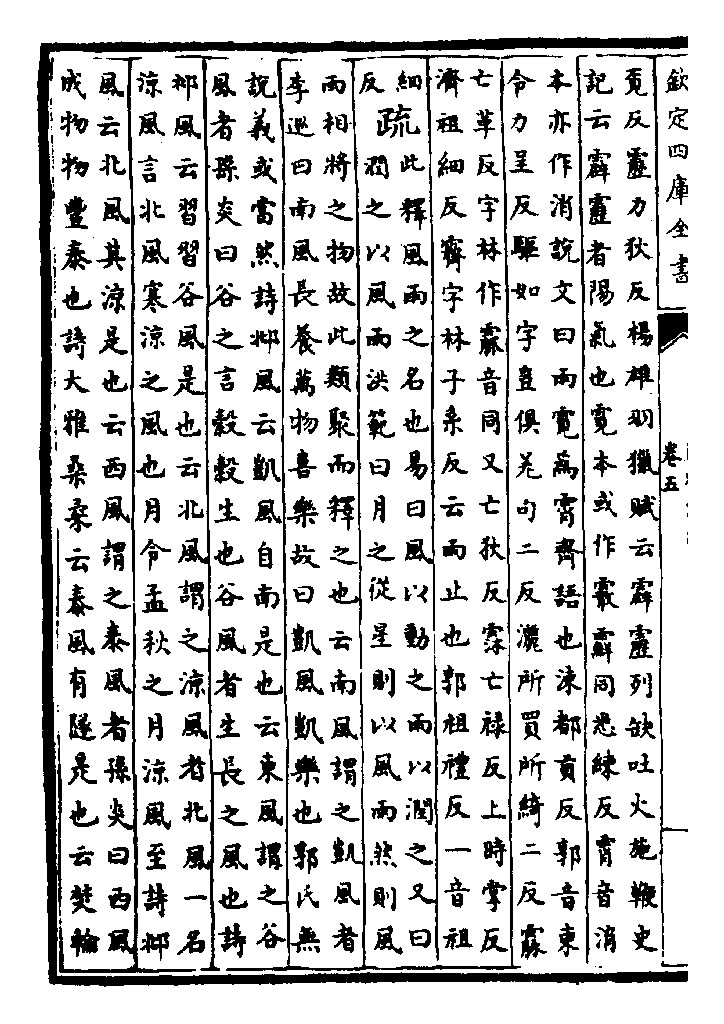 欽定四庫全書
卷五
覔反靂力狄反楊雄羽獵賦云霹靂列缺吐火施鞭史
記云霹靂者陽氣也霓本或作䨘同悉練反霄音消
本亦作消說文曰雨霓為霄齊語也涷都貢反郭音東
令力呈反驅如字豈俱羗句二反灑所買所綺二反霢
亡革反字林作霡音同又亡狄反霂亡禄反上時掌反
濟祖細反霽字林子系反云雨止也郭祖禮反一音祖
細
反
疏
此釋風雨之名也易曰風以動之雨以潤之又曰
潤之以風雨洪範曰月之從星則以風雨然則風
雨相將之物故此類聚而釋之也云南風謂之凱風者
李巡曰南風長養萬物喜樂故曰凱風凱樂也郭氏無
說義或當然詩邶風云凱風自南是也云東風謂之谷
風者孫炎曰谷之言穀穀生也谷風者生長之風也詩
邶風云習習谷風是也云北風謂之涼風者北風一名
涼風言北風寒涼之風也月令孟秋之月涼風至詩邶
風云北風其涼是也云西風謂之泰風者孫炎曰西風
成物物豐泰也詩大雅桑柔云泰風有隧是也云焚輪